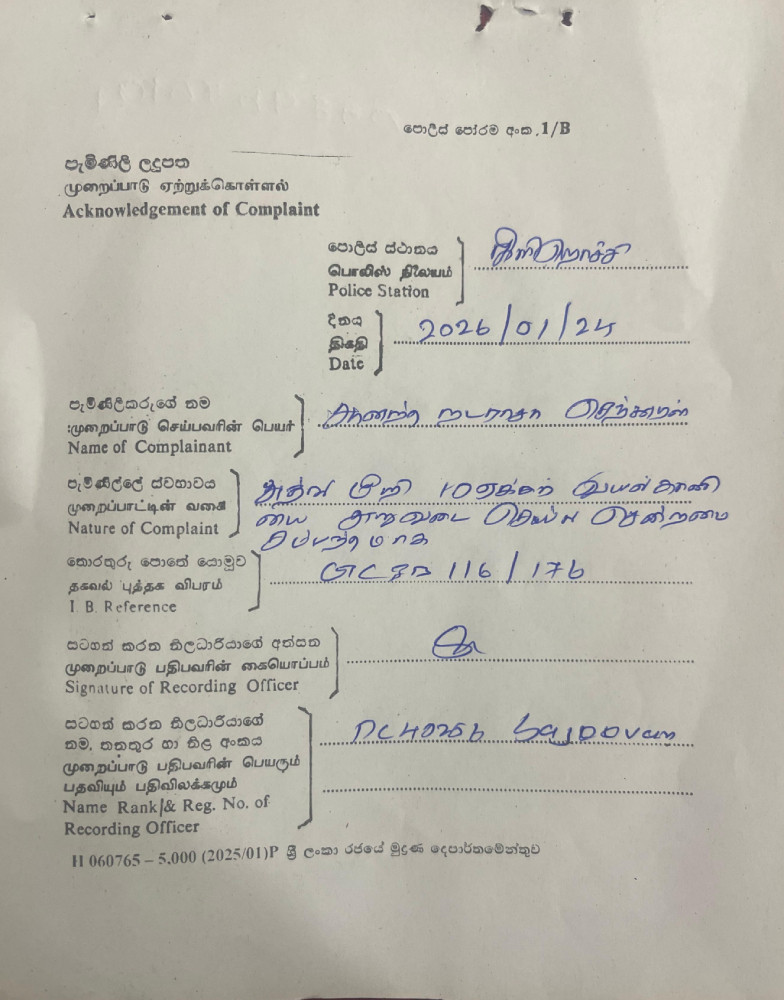 පොලිස් පෝරම අංක. 1/B
පැමිණිලි ලදුපත
முறைப்பாடு ஏற்றுக்கொள்ளல்
Acknowledgement of Complaint
පොලිස් ස්ථානය
பொலிஸ் நிலையம்
Police Station
கிளிநொச்சி
දිනය
திகதி
Date
2026/01/24
පැමිණිලිකරුගේ නම
முறைப்பாடு செய்பவரின் பெயர்
Name of Complainant
ஆனந்த நடராசா
පැමිණිල්ලේ ස්වභාවය
முறைப்பாட்டின் வகை
Nature of Complaint
அத்து மீறி 10 ஏக்கர் வயல் காணி
யை அறுவடை செய்ய சென்றமை
சம்பந்தமாக
තොරතුරු පොතේ යොමුව
தகவல் புத்தக விபரம்
I. B. Reference
116/176
සටහන් කරන නිලධාරියාගේ අත්සන
முறைப்பாடு பதிபவரின் கையொப்பம்
Signature of Recording Officer
සටහන් කරන නිලධාරියාගේ
නම, තනතුර හා නිල අංකය
முறைப்பாடு பதிபவரின் பெயரும்
பதவியும் பதிவிலக்கமும்
Name Rank & Reg. No. of
Recording Officer
H 060765 – 5,000 (2025/01)P ශ්‍රී ලංකා රජයේ මුද්‍රණ දෙපාර්තමේන්තුව